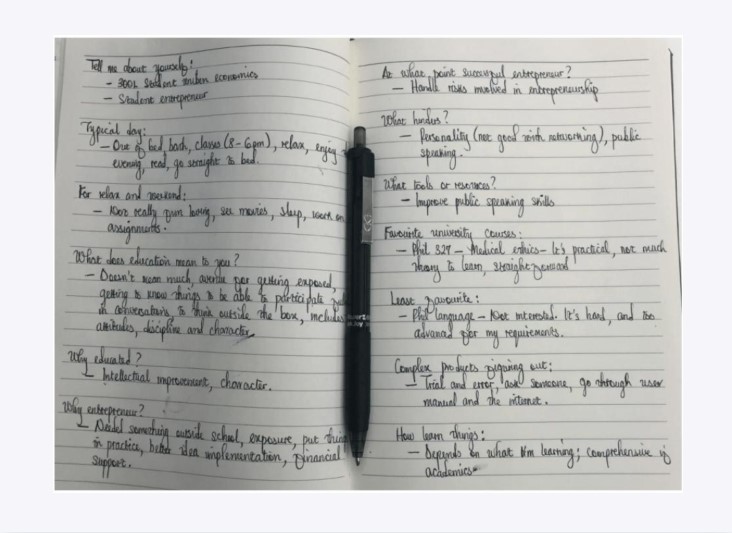 Tell me about yourself:
- 300L Student miben economics
- Student entrepreneur
Typical day:
- Out of bed, bath, classes (8-6pm), relax, enjoy
evening, read, go straight to bed.
For relax and weekend:
- Not really fun loving, see movies, sleep, work on
assignments.
What does education mean to you?
- Doesn't mean much, avenue for getting exposed,
getting to know things to be able to participate
in conversations, to think outside the box, includes
attitudes, discipline and character
Why educated?
- Intellectual improvement, character.
Why entrepreneur?
- Needed something outside school, exposure, put things
in practice, better idea implementation, financial
support.
At what point successful entrepreneur?
- Handle risks involved in entrepreneurship
What hinders?
- Personality (not good with networking), public
speaking.
What tools or resources?
- Improve public speaking skills
Favourite university courses:
- Phil 327 - Medical ethics - It's practical, not much
theory to learn, straight forward
Least favourite:
- Phil language - Not interested. It's hard, and too
advanced for my requirements.
Complex products figuring out:
- Trial and error, ask someone, go through user
manual and the internet.
How learn things:
- Depends on what I'm learning; comprehensive if
academics